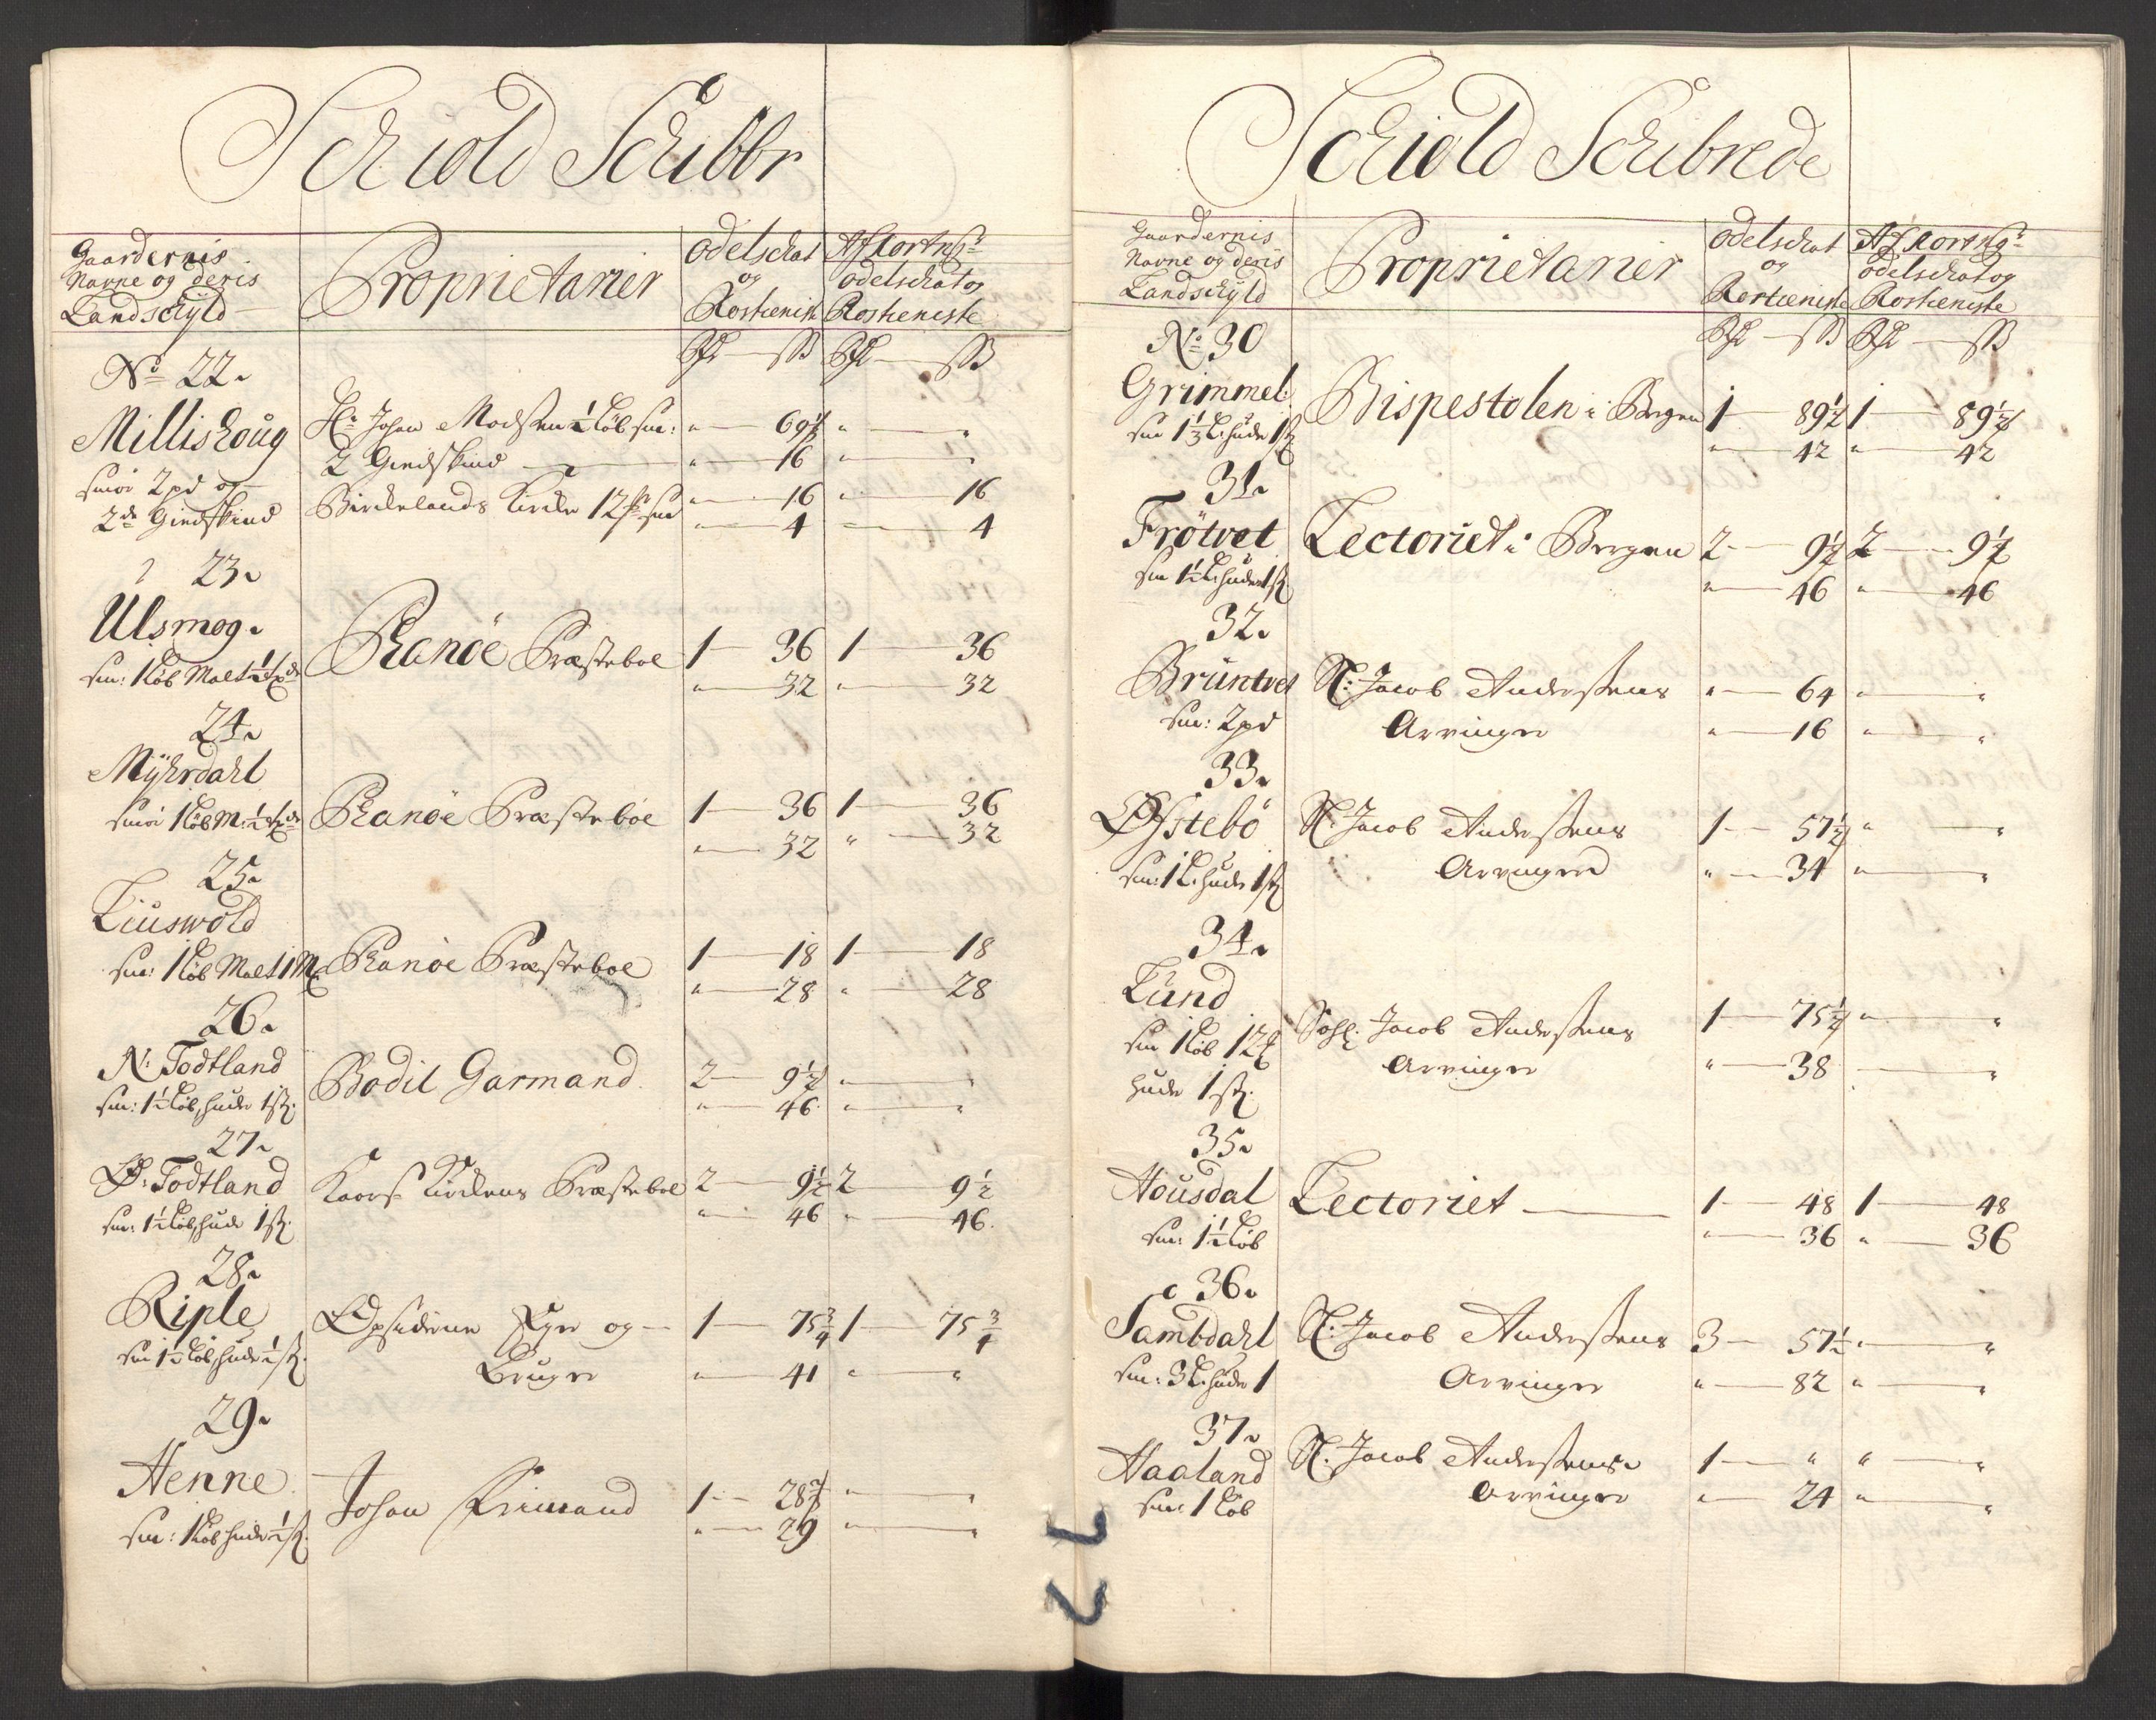 Schiold Schibbr
Gaardernis
Navne og deris
Landschyld
Proprietarier
Odelschat
og
Rostieniste
Afkortngs
odelschat og
Rostieniste
No 22.
Millishoug
smör 2pd og
2de Giedskind
Hr Johan Madsen ½ löb sm:
2 Giedskind
Birkelands Kirke
" 69⅓ " "
" 16 " "
" 16 " 16
" 4 " 4
23.
Ulsmog.
sm: 1 löb Malt ½
Phanöe Præstebol
1 36 1 36
" 32 " 32
24.
Myhrdahl
smör 1 löb M: ½
Phanöe Præstebol
1 36 1 36
" 32 " 32
25.
Liuswold
sm: 1 löb Malt 1 M
Phanöe Præstebol
1 18 1 18
" 28 " 28
26.
N: Todtland
sm: 1½ löb, hude 1 st.
Bodil Garmand
2 9½ " "
" 46 " "
27.
Ø: Todtland
sm: 1½ löb, hude 1 st.
Kaars Kirkens Præstebol
2 9½ 2 9½
" 46 " 46.
28.
Riple
sm 1½ löb, hude ½ st.
Opsidderne Eyer og
Bruger
1 75¾ 1 75¾
" 41 " "
29.
Henne
sm: 1 löb hude ½ st.
Johan Frimand
1 28 " "
" 29 " "
Schiold Schibrede
Gaardernis
Navne og deris
Landschyld
Proprietarier
Odelschat
og
Rostieniste
Afkortngs
odelschat og
Rostieniste
No 30
Grimmel:
sm 1⅓ L: hude 1 st
Bispestolen i Bergen
1 89½ 1 89½
" 42 " 42
31.
Frötvet
sm 1½ L: hude 1 st
Lectoriet i Bergen
2 9½ 2 9½
" 46 " 46
32.
Brüntvet
sm: 2pd
Sl: Jacob Andersens
Arvinger
" 64 " "
" 16 " "
33.
Østebö
sm: 1 L: hude 1 st
Sl: Jacob Andersens
Arvinger
1 57½ " "
" 34 " "
34.
Lünd
sm 1 löb 12
hude 1 st.
Sahl: Jacob Andersens
Arvinger
1 75½ " "
" 38 "
35.
Housdal
sm: 1½ löb
Lectoriet
1 48 1 48
" 36 " 36
36.
Sambdahl
sm: 3 L: hude 1
Sl: Jacob Andersens
Arvinger
3 57½ " "
" 82 " "
37.
Haaland
sm: 1 löb
Sl: Jacob Andersens
Arvinger
1 " " "
" 24 " "